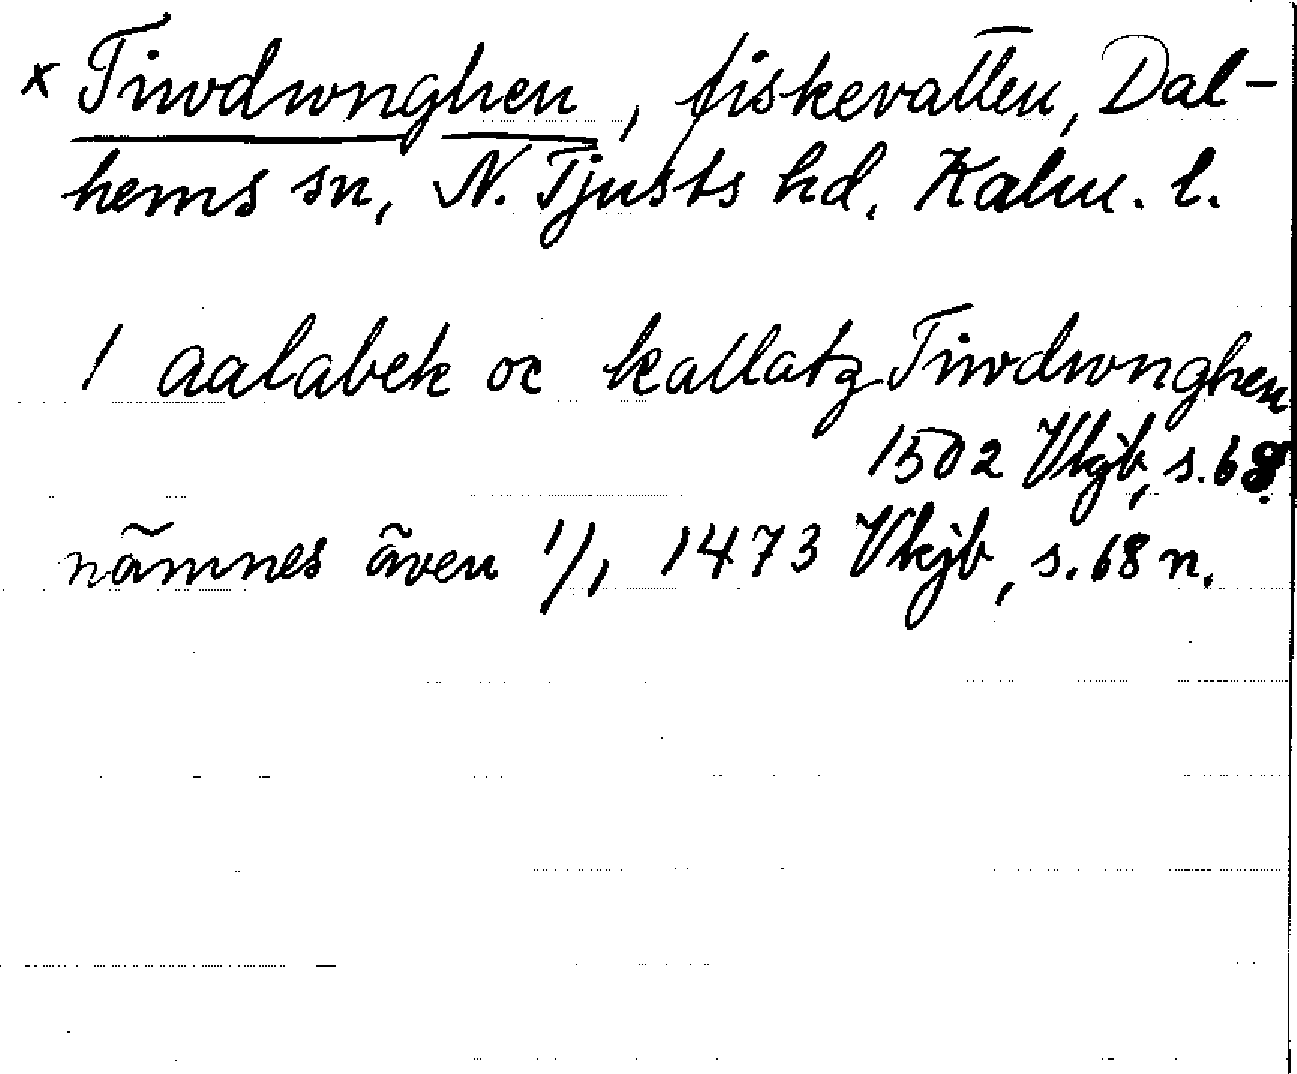 x Tiwdwnghen, fiskevatten, Dal-
hems sn, N. Tjusts hd, Kalm. l.
1 aalabek oc kallatz Tiwdwnghen
1502 Vkjb, s. 68
nämnes även 1/1 1473 Vkjb, s. 68 n.